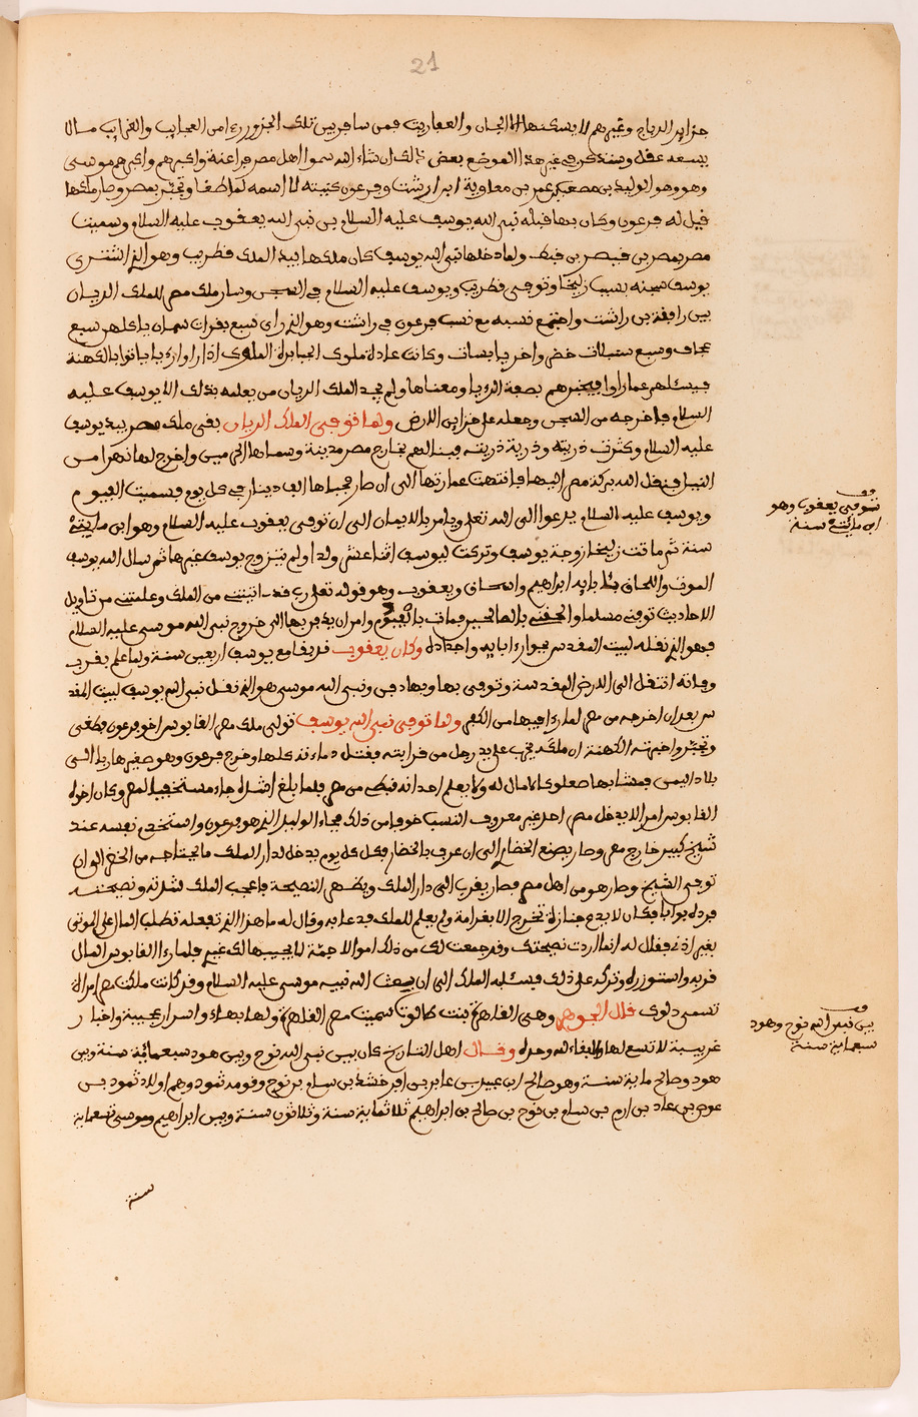 21
جزاير الرياح وغيرهم لا يسكنها الا الجان والعفاريت فمن سافر بين تلك الجزور رءا من العجايب والغرايب ما لا
يسعه عقل وسنذكر في غير هذا الموضع بعض ذالك ان شاء الله سموا اهل مصر فراعنة واكبرهم واكبرهم موسى
وهو وهو الوليد بن مصعب بن عمر بن معاوية ابن اراشت وفرعون كنيته لا اسمه لما طغا وتجبر بمصر وصار ملكها
قيل له فرعون وكان بها قبله نبي الله يوسف عليه السلام بن نبي الله يعقوب عليه السلام وسميت
مصر بمصر بن قبصر بن قبط ولما دخلها نبي الله يوسف كان ملكها بيد الملك قطريب وهو الذي اشترى
يوسف سجنه بسبب زليخا وتوفى قطريب ويوسف عليه السلام في السجن وصار ملك مصر للملك الريان
بن رافقة بن راشت واجتمع نسبه مع نسب فرعون في راشت وهو الذي راى سبع بقرات سمان ياكلهن سبع
عجاف وسبع سنبلات خضر واخر يابسات وكانت عادة ملوك الجبابرة الملوك اذا راوا رءيا ياتوا بالكهنة
فيسئلهم عما راوا فيخبرهم بصفة الرءيا ومعناها ولم يجد الملك الريان من يعلمه بذلك الا يوسف عليه
السلام فاخرجه من السجن وجعله على خزاين الارض ولما توفى الملك الريان بقى ملك مصر بيد يوسف
عليه السلام وكثرت ذريته وذرية ذريته فبنا لهم بخارج مصر مدينة وسماها الفيمين واخرج لها نهرا من
النيل فنقل الله بركة مصر اليها فانتهت عمارتها الى ان صار مجباها الف دينار في كل يوم فسميت الفيوم
ويوسف عليه السلام يدعوا الى الله تعلى ويامر بالايمان الى ان توفى يعقوب عليه السلام وهو ابن مايتي
سنة ثم ماتت زليخا زوجة يوسف وتركت ليوسف اثنا عشر ولدا ولم يتزوج يوسف غيرها ثم سال الله يوسف
الموت واللحاق بئابايه ابراهيم واسحاق ويعقوب وهو قوله تعلى رب قد ءاتيتني من الملك وعلمتني من تاويل
الاحاديث توفني مسلما والحقني بالصالحين فمات بالفيوم وامر ان يدفن بها الى خروج نبي الله موسى عليه السلام
فهو الذي نقله لبيت المقدس فجواره ابايه واجداده وكان يعقوب فريقا مع يوسف اربعين سنة ولما علم بقرب
وفاته انتقل الى الارض المقدسة وتوفى بها وبها دفن ونبي الله موسى هو الذي نقل نبي الله يوسف لبيت المقد
س بعد ان اخرجه من مصر لما رءا فيها من الكفر ولما توفى نبي الله يوسف تولى ملك مصر القابوس اخو فرعون فطغى
وتجبر واخبرته الكهنة ان ملكه يخرب على يد رجل من قرابته فقتل دماءته كلها وخرج فرعون وهو صغير هاربا الى
بلاد اليمن فمشا بها صعلوكا لا مال له ولا يعلم احد انه قبطي من مصر فلما بلغ اشده جاء مستخفيا لمصر وكان اخوه
القابوس امر الا يدخل مصر احد غير معروف النسب خوفا من ذلك فجاء الوليد الذي هو فرعون واستخدم نفسه عند
شيخ كبير خارج مصر وصار يصنع الخضار الى ان عرف بالخضار فكل كل يوم يدخل لدار الملك ما يحتاجه من الخضر الى ان
توفى الشيخ وصار هو من اهل مصر فصار يقرب الى دار الملك ويظهر النصيحة فاعجب الملك لشدته ونصيحته
فرده بوابا فكان لا يدع جنازة تخرج الا بغرامة ولم يعلم للملك فدعا به وقال له ما هذا الذي تفعله تطلب المال على الموتى
بغير اذني فقال له انما اردت نصيحتك وقد جمعت لك من ذلك اموالا جمة لا يجيبها لك غيري فلما رءا القابوس المال
قربه واستوزره وتركه على ذلك فيسئله الملك الى ان بعث الله نبيه موسى عليه السلام وقد كانت ملكت مصر امراة
تسمى دلوك قلال الجوهر وهي القاهرة بنت كالوت سميت مصر القاهرة ولها بهاء واسرار عجيبة واخبار
غريبة لا تسع لها والبقاء لله وحده وقال اهل التاريخ كان بين نبي الله نوح وبين هود سبعماية سنة وبين
هود وصالح ماية سنة وهو صالح ابن عبير بن عابر بن افرخشد بن سام بن نوح وقومه ثمود وهم اولاد ثمود بن
عوص بن عاد بن ارم بن سام بن نوح بن صالح بن ابراهيم ثلاثماية سنة وثلاثون سنة وبين ابراهيم وموسى تسعماية
سنة
قف
توفى يعقوب وهو
ابن مايتي سنة
قف
بين نبي الله نوح وهود
سبعماية سنة